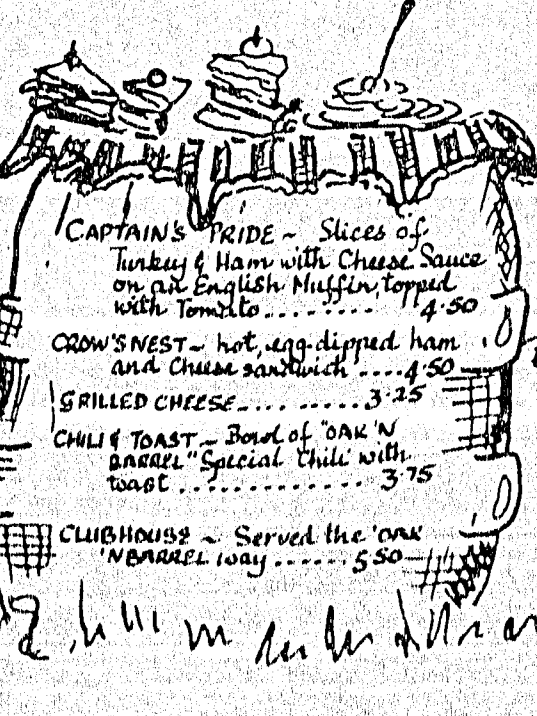 CAPTAIN'S PRIDE ~ Slices of
Turkey & Ham with Cheese Sauce
on an English Muffin, topped
with Tomato......... 4.50
CROW'S NEST ~ hot, egg-dipped ham
and Cheese sandwich ....4.50
GRILLED CHEESE.... ...... 3.25
CHILI & TOAST ~ Bowl of "OAK 'N
BARREL" Special Chili with
toast ............. 3.75
CLUBHOUSE ~ Served the 'OAK
'N BARREL way ...... 5.50